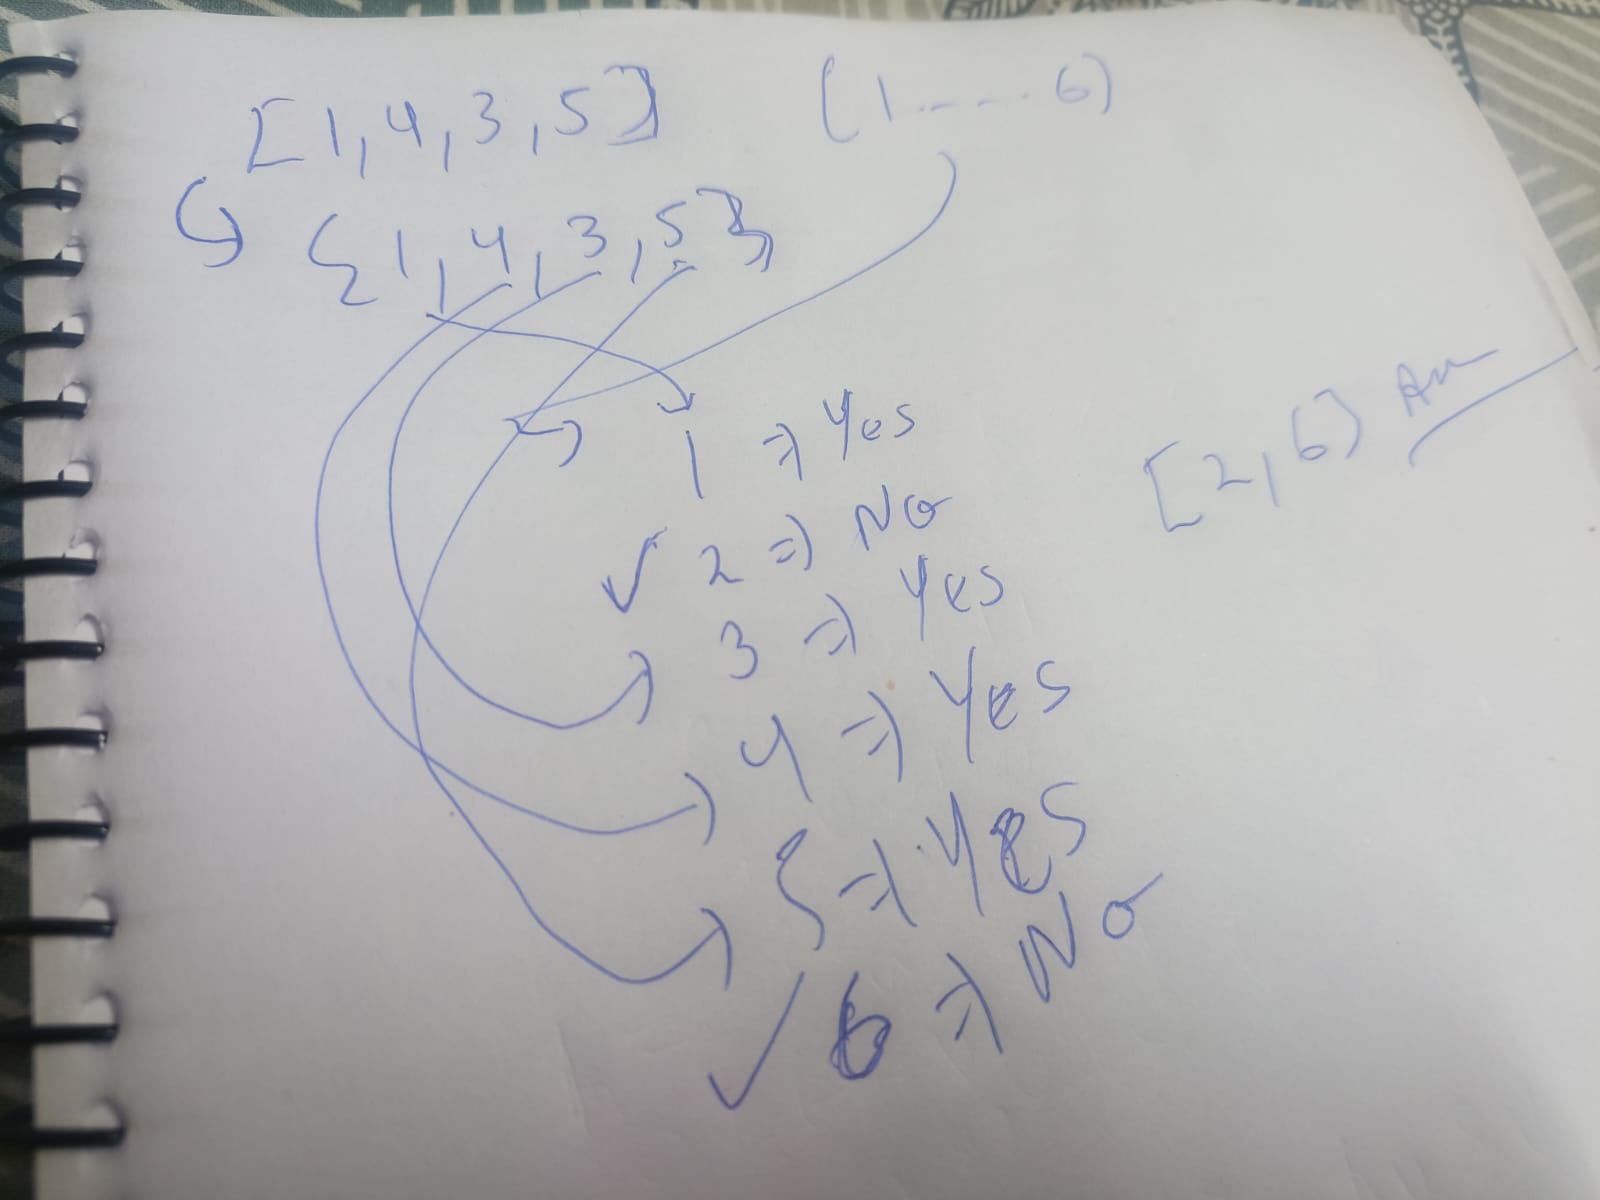 [1,4,3,5] [1.....6]
{1,4,3,5}
1 => Yes
✓ 2 => No
3 => Yes
4 => Yes
5 => Yes
✓ 6 => No
[2,6] Ans